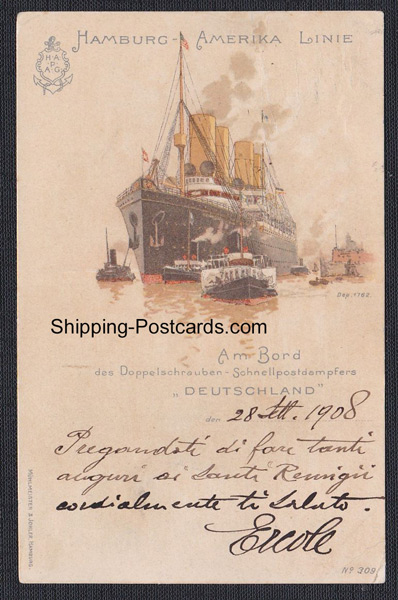 Hamburg-Amerika Linie
H.A.
P.
A.G.
Dep. 1782.
Shipping-Postcards.com
Am Bord
des Doppelschrauben-Schnellpostdampfers
„DEUTSCHLAND"
den 28 Sett. 1908
Pregandoti di fare tanti
auguri ai Santi Remigii
cordialmente ti saluto.
Ercole
MÜHLMEISTER & JOHLER, HAMBURG.
No 309